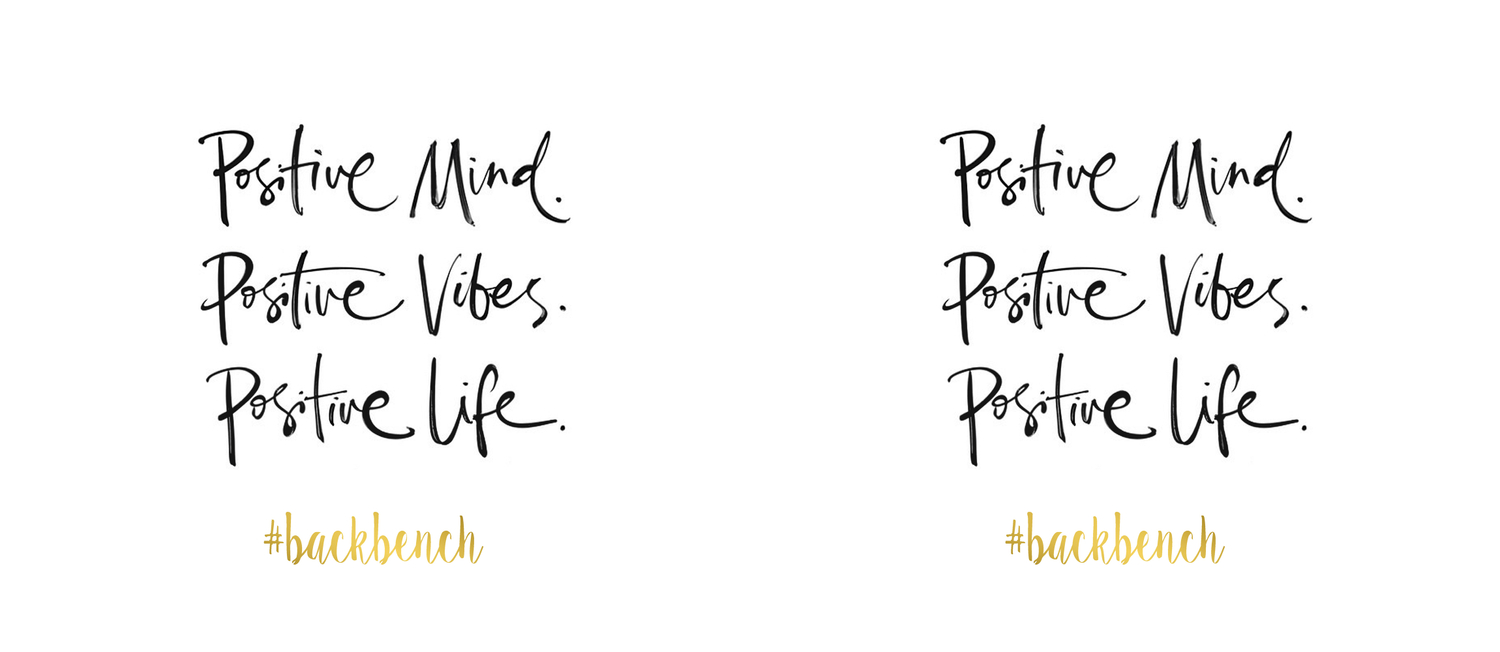 Positive Mind.
Positive Vibes.
Positive Life.
#backbench
Positive Mind.
Positive Vibes.
Positive Life.
#backbench